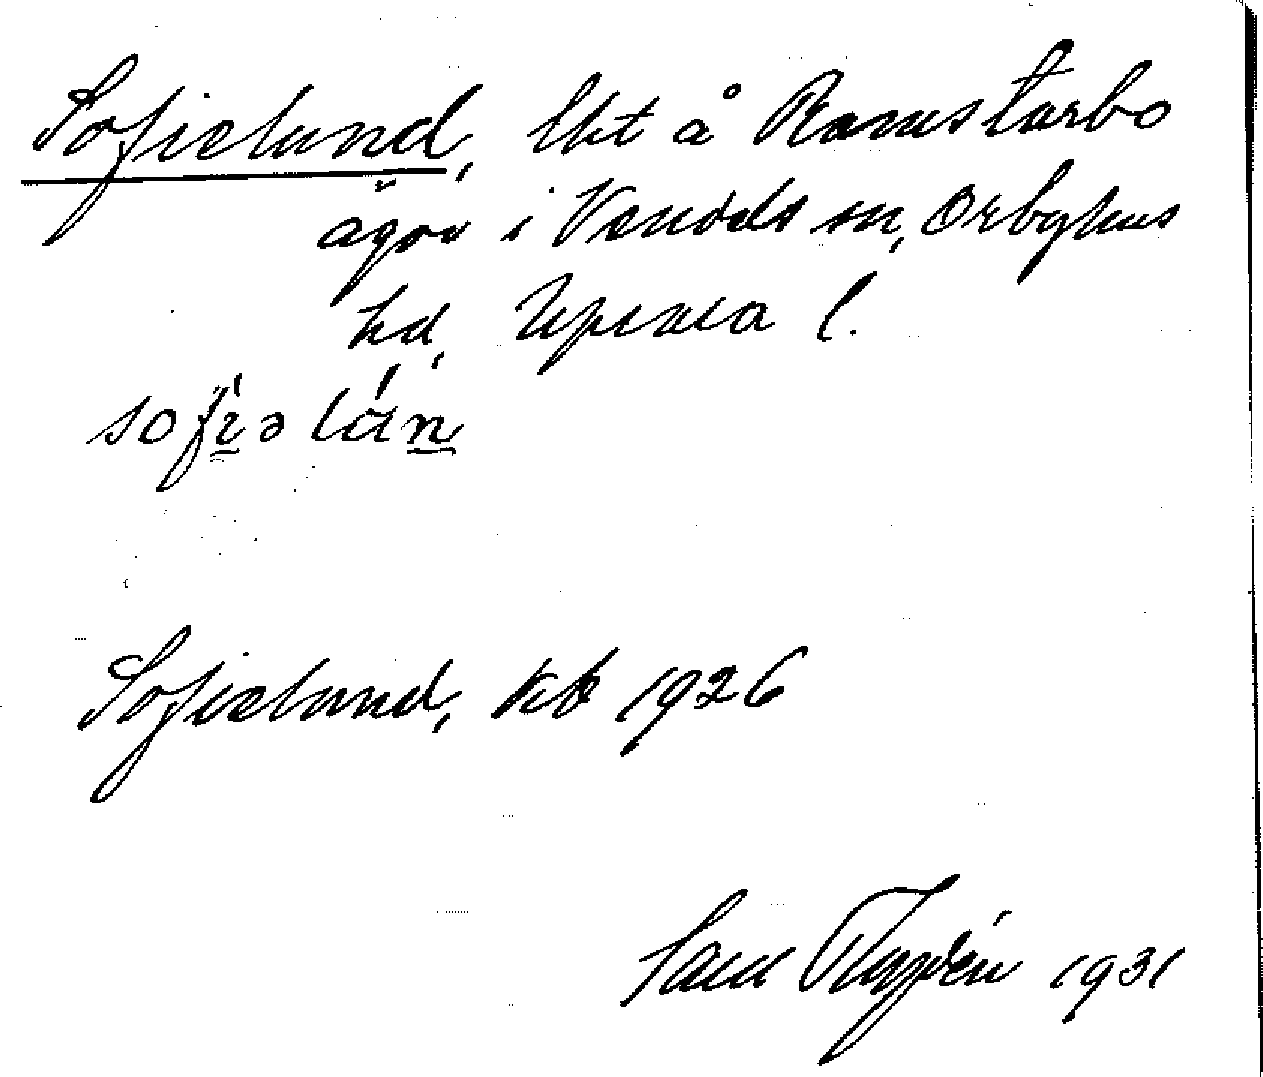 Sofielund, lht å Ramstarbo
ägor i Vendels sn, Örbyhus
hd, Uppsala l.
sofiəlán
Sofielund, kb 1926
1931